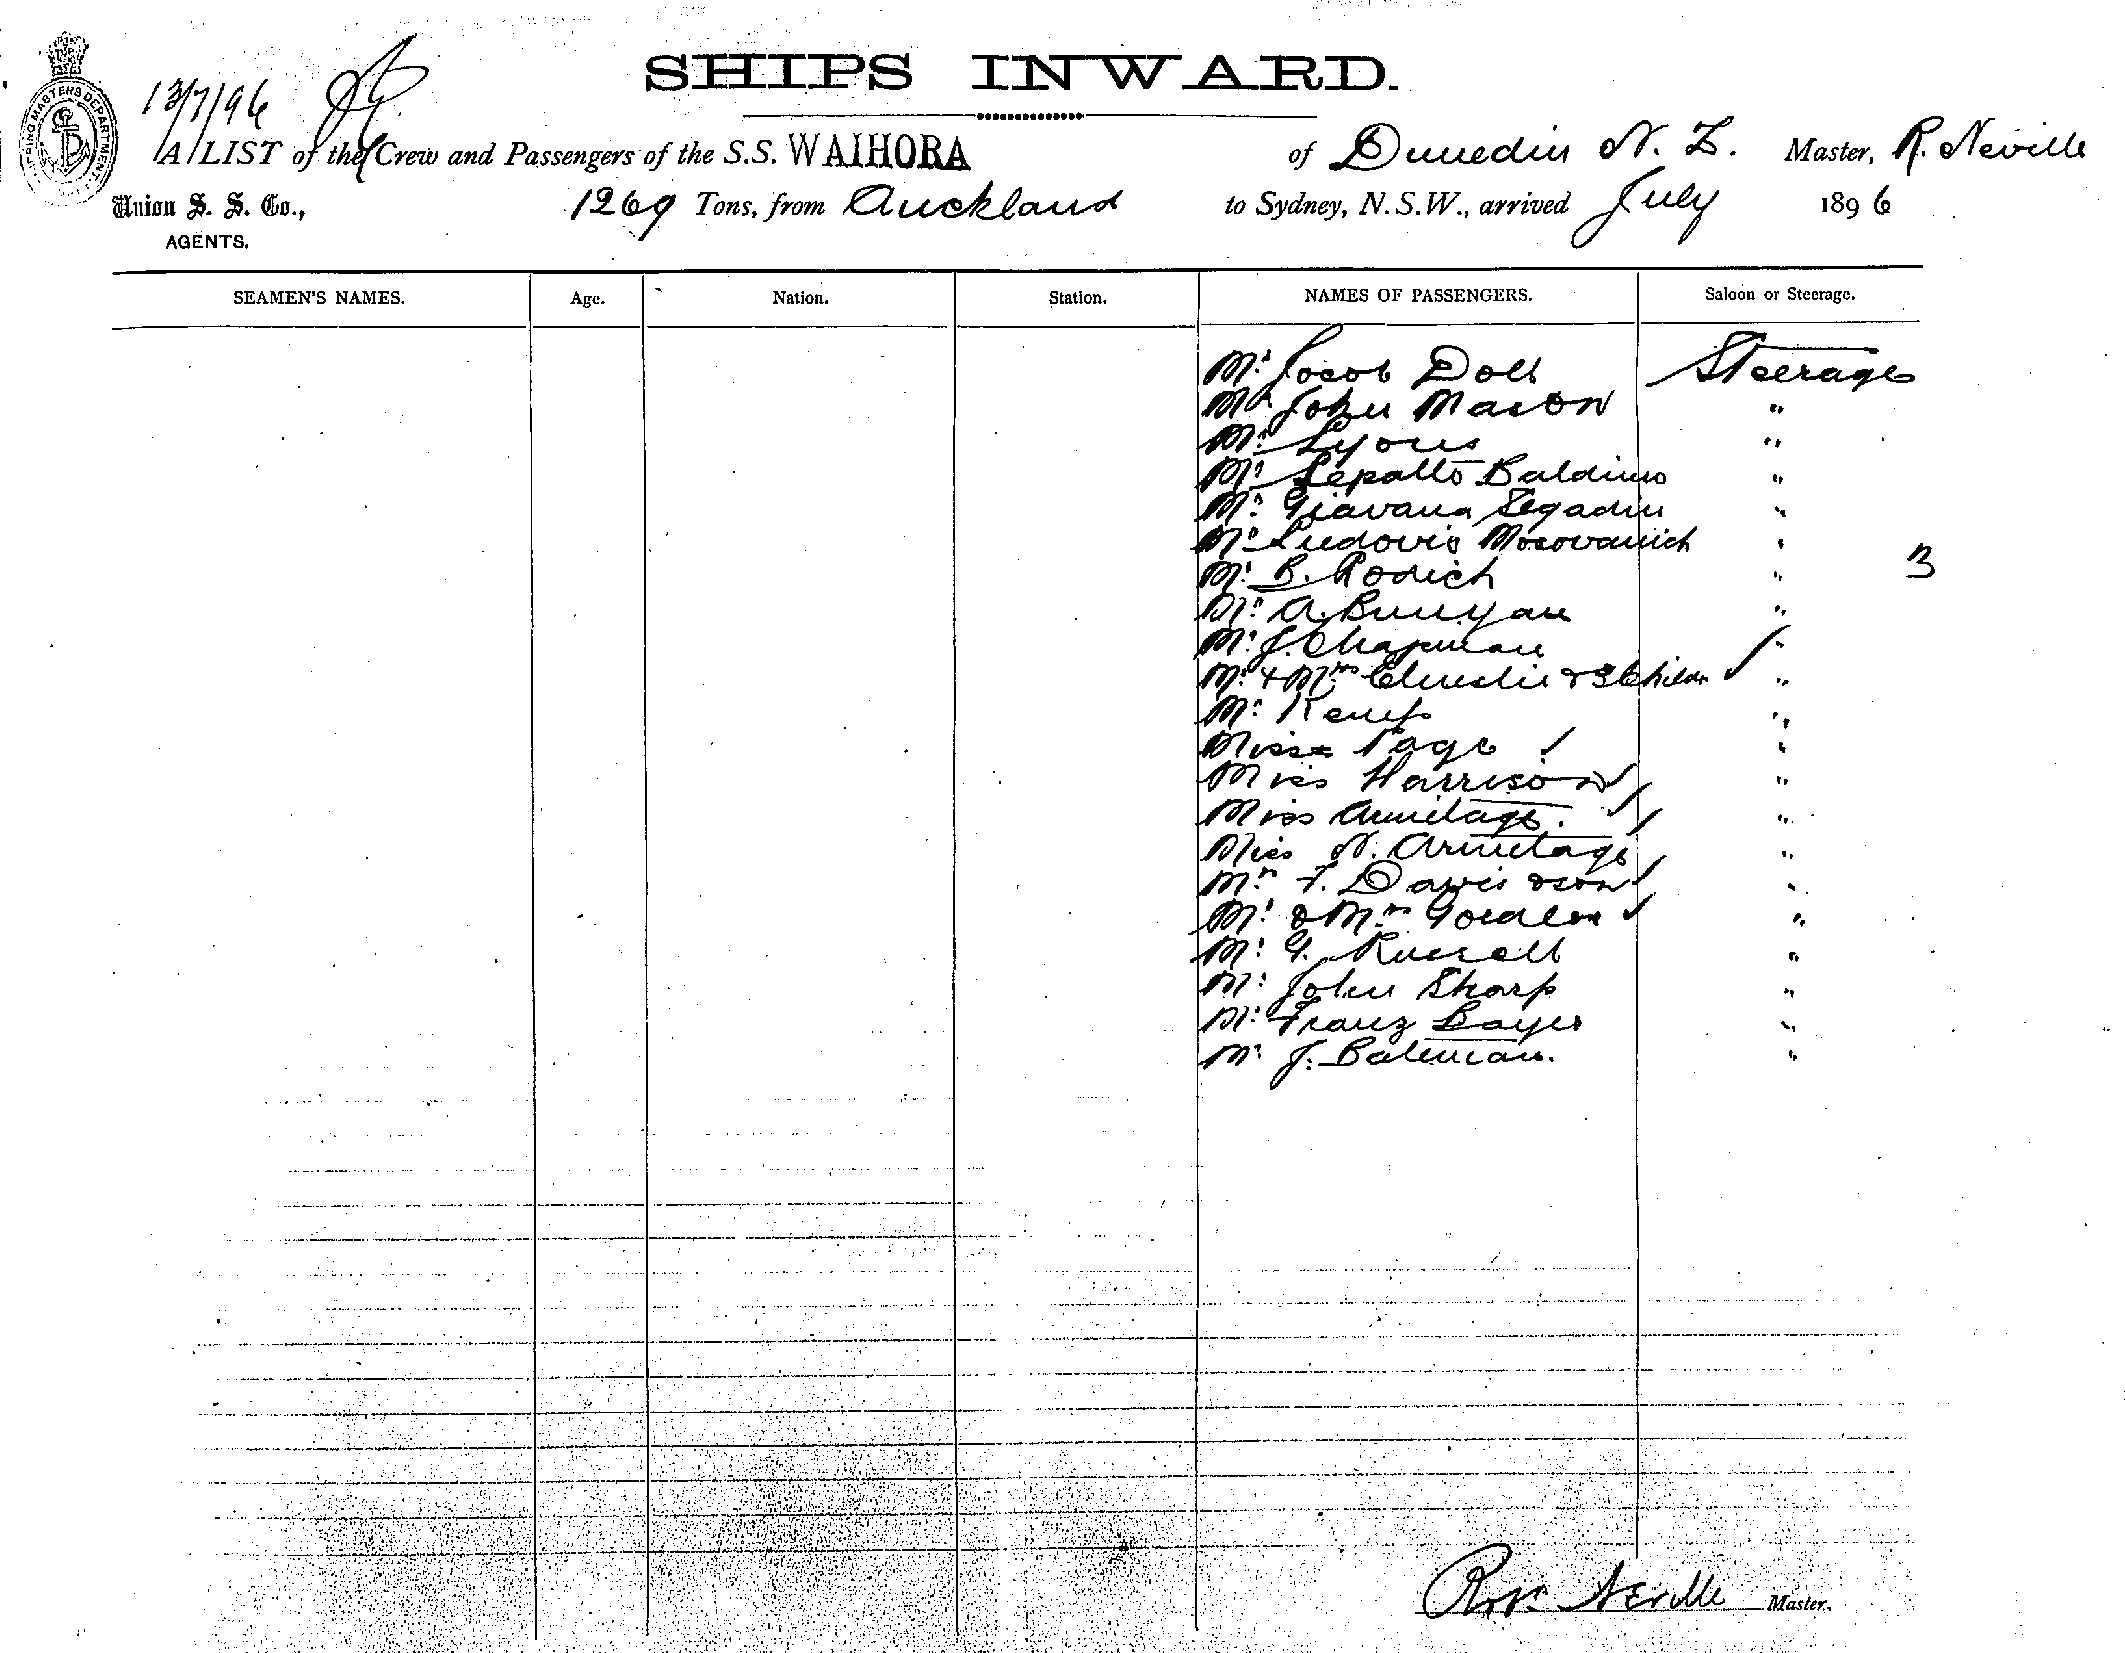 SHIPS INWARD.
13/7/96
A LIST of the Crew and Passengers of the S.S. WAIHORA of Dunedin N. Z. Master, R. Neville
Union S. S. Co., 1269 Tons, from Auckland to Sydney, N.S.W., arrived July 1896
AGENTS.
SEAMEN'S NAMES. Age. Nation. Station. NAMES OF PASSENGERS. Saloon or Steerage.
Mr Jocob Doll Steerage
Mr John Mason "
Mr Lyons "
Mr Sepatto Baldino "
Mr Giavana Segadin "
Mr Ludovis "
3
Mr B. Rodich "
Mr A. Bunyan "
Mr J. Chapman "
Mr & Mrs Christie & 3 Childn "
Mr Kemp "
Miss Page "
Miss Harrison "
Miss Armitage. "
Miss N. Armitage "
Mrs F. Davis & son "
Mr & Mrs "
Mr G. Russell "
Mr John Sharp "
Mr Franz Bayer "
Mr J. Bateman. "
Neville Master.